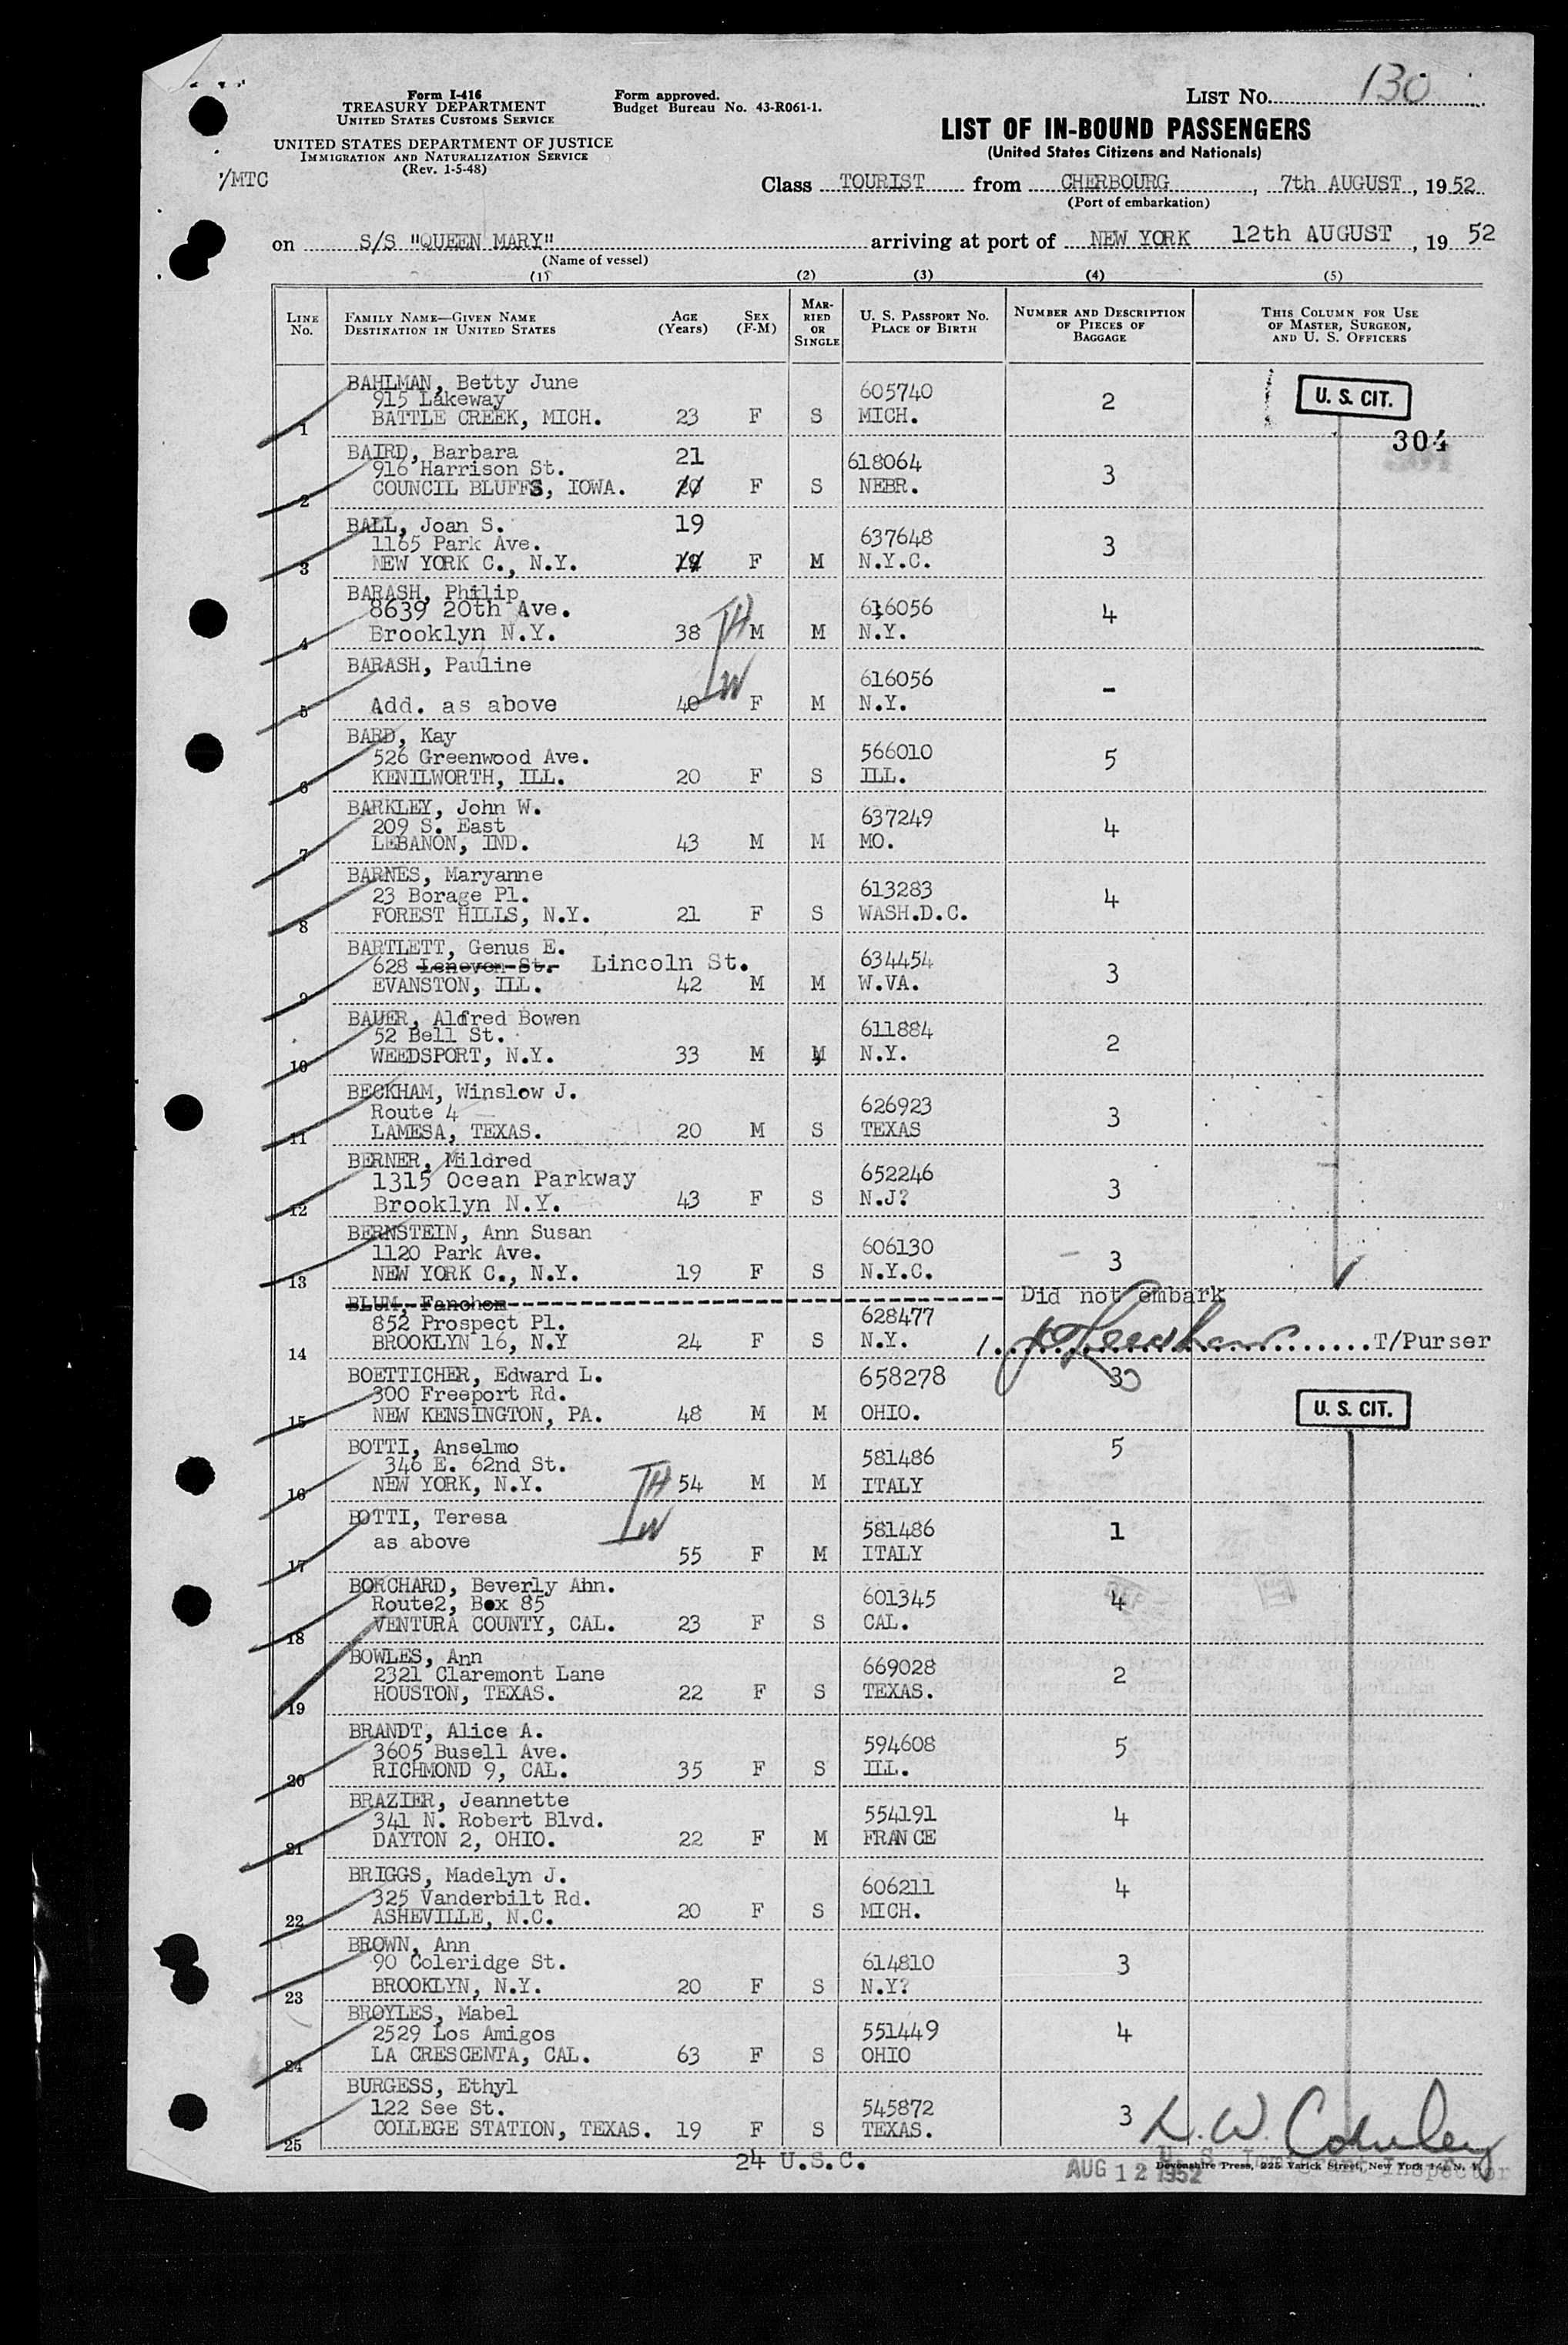 Form I-416
TREASURY DEPARTMENT
UNITED STATES CUSTOMS SERVICE
UNITED STATES DEPARTMENT OF JUSTICE
IMMIGRATION AND NATURALIZATION SERVICE
(Rev. 1-5-48)
/MTC
Form approved.
Budget Bureau No. 43-R061-1.
LIST No. 130
LIST OF IN-BOUND PASSENGERS
(United States Citizens and Nationals)
Class TOURIST from CHERBOURG, 7th AUGUST, 1952
(Port of embarkation)
on S/S "QUEEN MARY" arriving at port of NEW YORK 12th AUGUST, 1952
(Name of vessel)
(1) (2) (3) (4) (5)
LINE No. FAMILY NAME—GIVEN NAME DESTINATION IN UNITED STATES AGE (Years) SEX (F-M) MARRIED OR SINGLE U. S. PASSPORT NO. PLACE OF BIRTH NUMBER AND DESCRIPTION OF PIECES OF BAGGAGE THIS COLUMN FOR USE OF MASTER, SURGEON, AND U. S. OFFICERS
BAHLMAN, Betty June 605740 2 U. S. CIT.
915 Lakeway
1 BATTLE CREEK, MICH. 23 F S MICH.
304
BAIRD, Barbara 21 618064 3
916 Harrison St.
2 COUNCIL BLUFFS, IOWA. 20 F S NEBR.
BALL, Joan S. 19 637648 3
1165 Park Ave.
3 NEW YORK C., N.Y. F M N.Y.C.
BARASH, Philip 616056 4
8639 20th Ave.
4 Brooklyn N.Y. 38 M M N.Y.
H
BARASH, Pauline 616056 -
W
5 Add. as above 40 F M N.Y.
BARD, Kay 566010 5
526 Greenwood Ave.
6 KENILWORTH, ILL. 20 F S ILL.
BARKLEY, John W. 637249 4
209 S. East
7 LEBANON, IND. 43 M M MO.
BARNES, Maryanne 613283 4
23 Borage Pl.
8 FOREST HILLS, N.Y. 21 F S WASH.D.C.
BARTLETT, Genus E. 634454 3
628 Lenevon St. Lincoln St.
9 EVANSTON, ILL. 42 M M W.VA.
BAUER, Aldfred Bowen 611884 2
52 Bell St.
10 WEEDSPORT, N.Y. 33 M M N.Y.
BECKHAM, Winslow J. 626923 3
Route 4
11 LAMESA, TEXAS. 20 M S TEXAS
BERNER, Mildred 652246 3
1315 Ocean Parkway
12 Brooklyn N.Y. 43 F S N.J?
BERNSTEIN, Ann Susan 606130 3
1120 Park Ave.
13 NEW YORK C., N.Y. 19 F S N.Y.C.
BLUM, Fanchom Did not embark
852 Prospect Pl. 628477
14 BROOKLYN 16, N.Y 24 F S N.Y. T/Purser
BOETTICHER, Edward L. 658278 3
300 Freeport Rd. U. S. CIT.
15 NEW KENSINGTON, PA. 48 M M OHIO.
BOTTI, Anselmo 581486 5
346 E. 62nd St.
16 NEW YORK, N.Y. 54 M M ITALY
H
BOTTI, Teresa 581486 1
W
as above
17 55 F M ITALY
BORCHARD, Beverly Ahn. 601345 4
Route2, Box 85
18 VENTURA COUNTY, CAL. 23 F S CAL.
BOWLES, Ann 669028 2
2321 Claremont Lane
19 HOUSTON, TEXAS. 22 F S TEXAS.
BRANDT, Alice A. 594608 5
3605 Busell Ave.
20 RICHMOND 9, CAL. 35 F S ILL.
BRAZIER, Jeannette 554191 4
341 N. Robert Blvd.
21 DAYTON 2, OHIO. 22 F M FRANCE
BRIGGS, Madelyn J. 606211 4
325 Vanderbilt Rd.
22 ASHEVILLE, N.C. 20 F S MICH.
BROWN, Ann 614810 3
90 Coleridge St.
23 BROOKLYN, N.Y. 20 F S N.Y?
BROYLES, Mabel 551449 4
2529 Los Amigos
24 LA CRESCENTA, CAL. 63 F S OHIO
BURGESS, Ethyl 545872 3
122 See St.
25 COLLEGE STATION, TEXAS. 19 F S TEXAS.
24 U.S.C.
AUG 12 1952
U. S. Immigrant Inspector
Devonshire Press, 225 Varick Street, New York 14, N. Y.